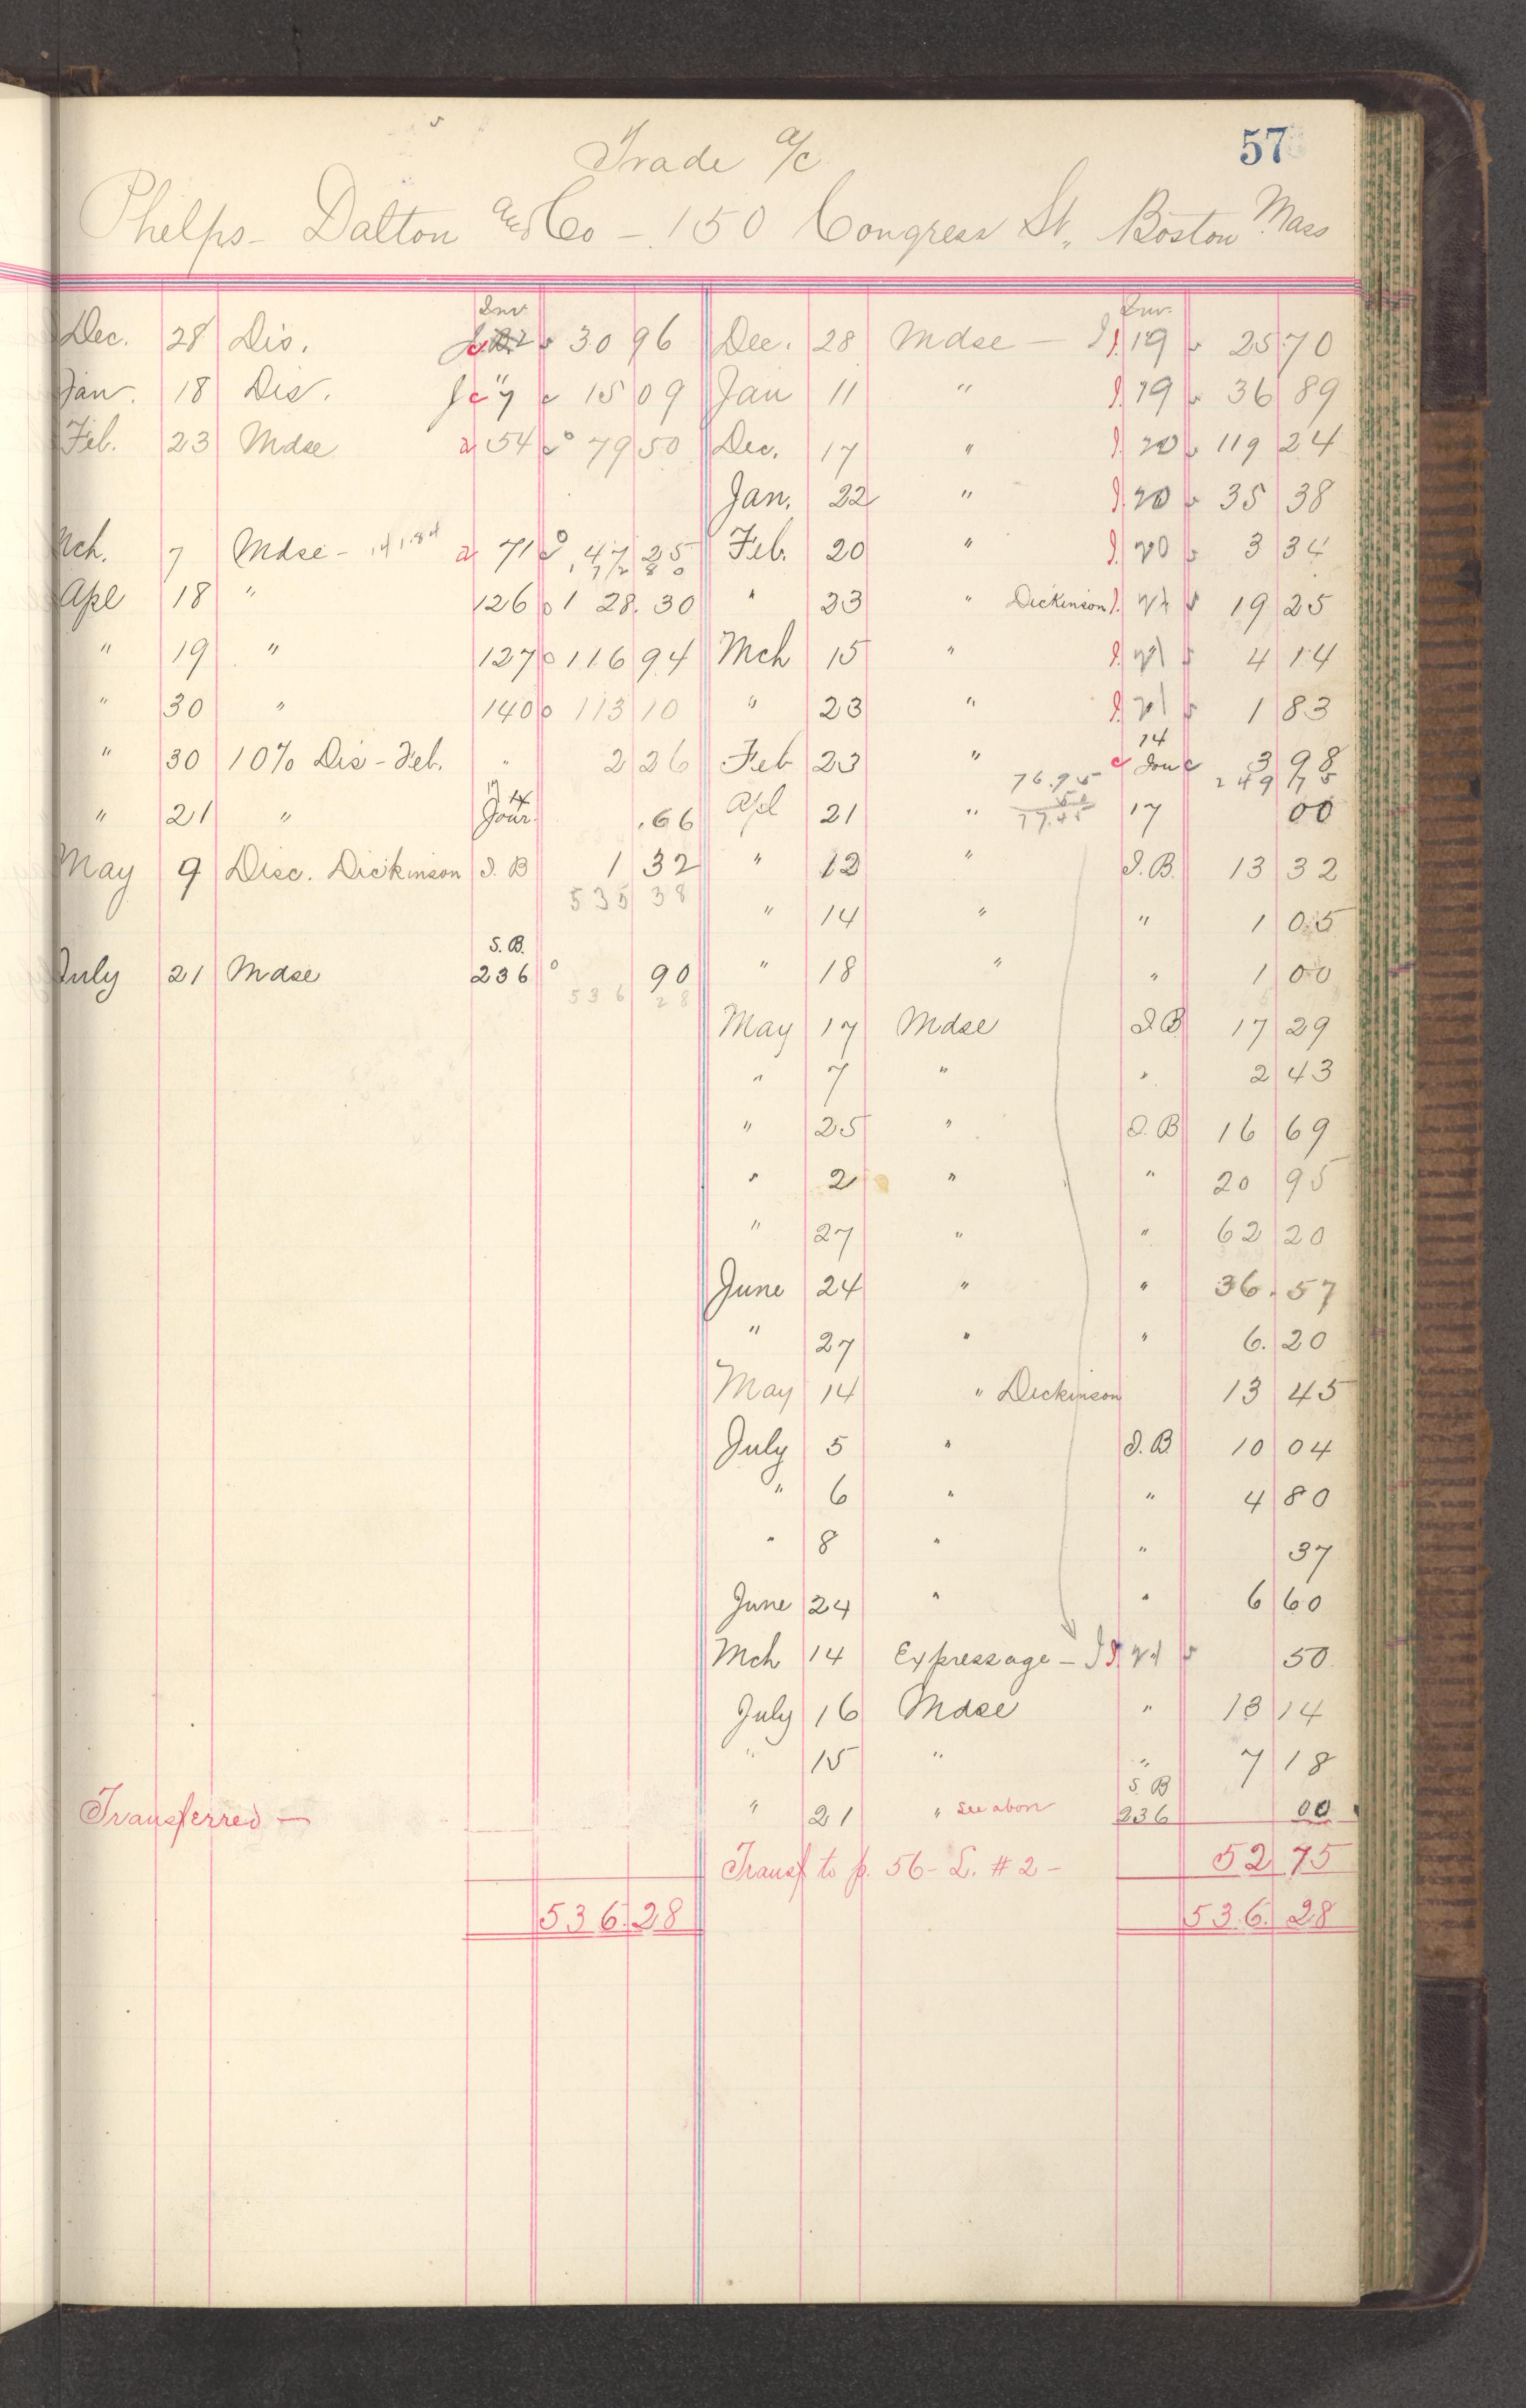 57
Trade a/c
Phelps - Dalton and Co - 150 Congress St., Boston Mass
Inv.
Dec. 28 Dis. 30 96
Jan. 18 Dis. " 7 15 09
Feb. 23 Mdse 54 79 50
Mch. 7 Mdse - 141.84 71 47 25
1 72 80
Apl 18 " 126 1 28.30
" 19 " 127 116 94
" 30 " 140 113 10
" 30 10% Dis - Feb. " 2 26
" 21 " Jour. .66
May 9 Disc. Dickinson I. B 1 32
535 38
S. B.
July 21 Mdse 236 90
536 28
Transferred —
536.28
Inv.
Dec. 28 Mdse — I. 19 25 70
Jan 11 " I. 19 36 89
Dec. 17 " I. 20 119 24
Jan. 22 " I. 20 35 38
Feb. 20 " I. 20 3 34
" 23 " Dickinson I. 21 19 25
Mch 15 " I. 21 4 14
" 23 " I. 21 1 83
14
Feb 23 " c Jou c 3 98
76.95 249 75
Apl 21 " 17 00
77.45
" 12 " I. B. 13 32
" 14 " " 1 05
" 18 " " 1 00
May 17 Mdse I B 17 29
" 7 " " 2 43
" 25 " I. B 16 69
" 2 " " 20 95
" 27 " " 62 20
June 24 " " 36.57
" 27 " " 6.20
May 14 " Dickinson 13 45
July 5 " I. B. 10 04
" 6 " " 4 80
" 8 " " 37
June 24 " " 6 60
Mch 14 Expressage — I. 21 50
July 16 Mdse " 13 14
" 15 " " 7 18
S. B
" 21 " See above 236 00
Transf to p. 56 - L. # 2 - 52 75
536. 28